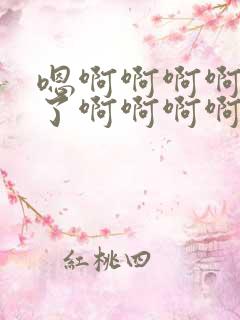 嗯啊啊啊啊
了啊啊啊啊
紅桃四